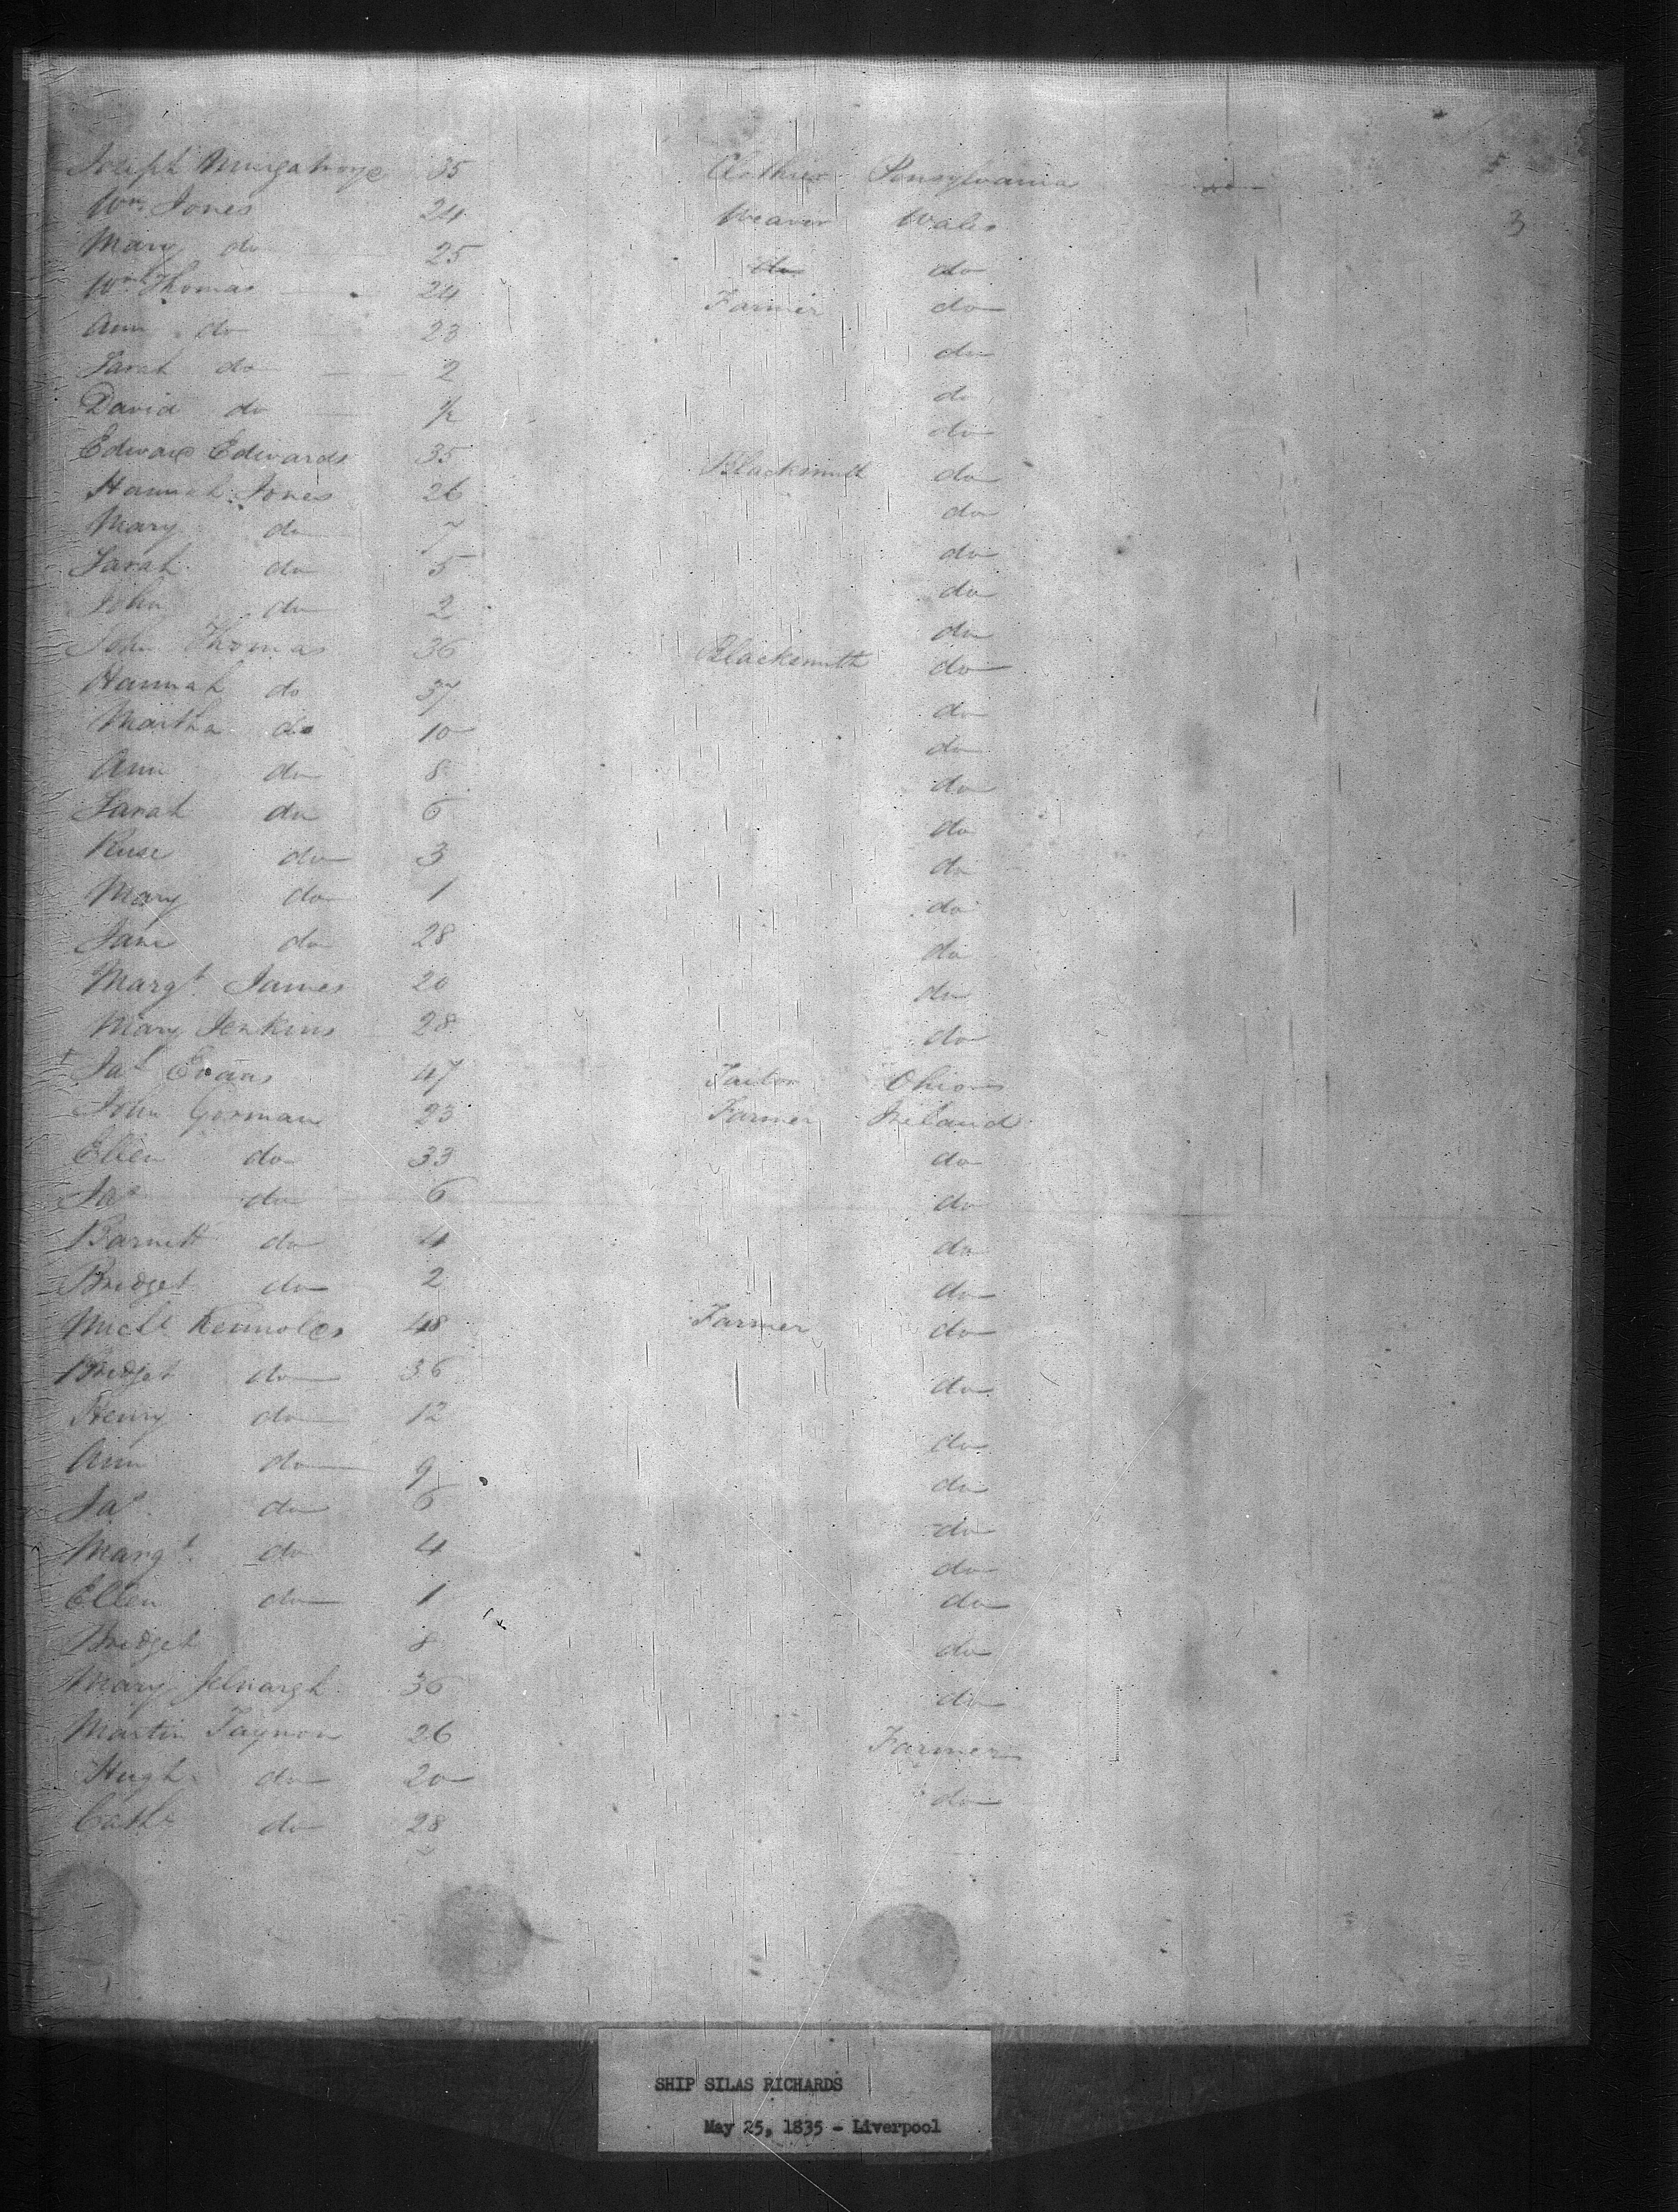 Joseph Murgatroye 35 Clothier Pensylvania
3
Wm Jones 24 Weaver Wales
Mary do 25 do do
Wm Thomas 24 Farmer do
Ann do 23 do
Sarah do 2 do
David do 1/2 do
Edward Edwards 35 Blacksmith do
Hannah Jones 26 do
Mary do 7 do
Sarah do 5 do
John do 2 do
John Thomas 36 Blacksmith do
Hannah do 37 do
Martha do 10 do
Ann do 8 do
Sarah do 6 do
do 3 do
Mary do 1 do
Jane do 28 do
Margt James 20 do
Mary Jenkins 28 do
Evans 47 Tailor Ohio
John Gorman 23 Farmer Ireland
Ellen do 33 do
Jas do 6 do
Barnett do 4 do
Bridget do 2 do
Michl 48 Farmer do
Bridget do 36 do
Henry do 12 do
Ann do 9 do
Jas do 6 do
Margt do 4 do
Ellen do 1 do
Bridget 8 do
Mary 36 do
Martin Taynon 26 Farmer
Hugh do 20 do
Cathe do 28
SHIP SILAS RICHARDS
May 25, 1835 - Liverpool